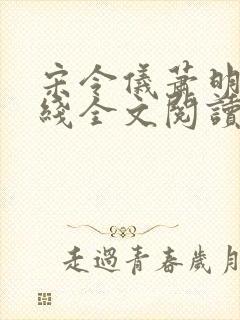 宋令儀蕭明
綫全文閱讀
走過青春歲月